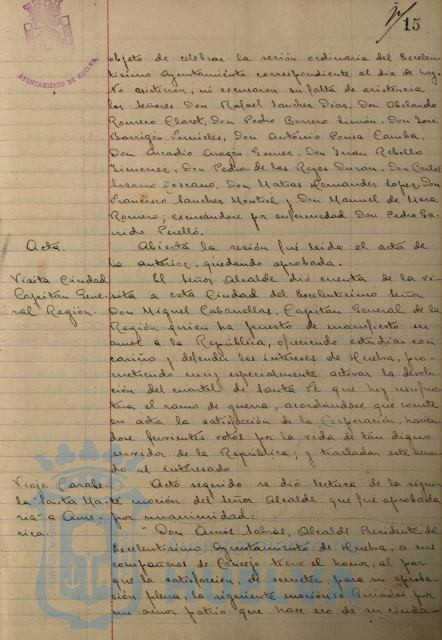 15
AYUNTAMIENTO DE HUELVA
objeto de celebrar la sesión ordinaria del Excelen-
tísimo Ayuntamiento correspondiente al día de hoy.
No asistieron, ni excusaron su falta de asistencia
los señores Don Rafael Sanchez Diaz, Don Abelardo
Romero Claret, Don Pedro Borrero Limón, Don José
Barrigón Fornieles, Don António Pousa Camba,
Don Arcadio Aragón Gomez, Don Juan Rebollo
Jimenez, Don Pedro de los Reyes Duran, Don Carlos
Lozano Toscano, Don Matias Hernandez Lopez, Don
Francisco Sanchez Montiel y Don Manuel de Mora
Romero; excusándose por enfermedad Don Pedro Ga-
rrido Perelló.
Acta.
Abierta la sesión fué leida el acta de
la anterior, quedando aprobada.
Visita Ciudad
Capitán Gene-
ral Región.
El Señor Alcalde dió cuenta de la vi-
sita a esta Ciudad del Excelentísimo Señor
Don Miguel Cabanellas, Capitán General de la
Región quien ha puesto de manifiesto su
amor a la República, ofreciendo estudiar con
cariño y defender los intereses de Huelva, pro-
metiendo muy especialmente activar la devolu-
ción del cuartel de Santa Fé que hoy usufruc-
túa el ramo de guerra, acordándose que conste
en acta la satisfacción de la Corporación, hacién-
dose fervientes votos por la vida de tan digno
servidor de la República; y trasladar este acuer-
do al interesado
Viaje Carabe-
la Santa Ma-
ria a Ame-
rica.
Acto seguido se dió lectura de la siguien-
te moción del Señor Alcalde que fué aprobada
por unanimidad:
"Don Amós Sabrás, Alcalde Presidente del
Excelentísimo Ayuntamiento de Huelva, a sus
compañeros de Concejo tiene el honor, al par
que la satisfacción, de someter para su aproba-
ción plena, la siguiente moción: Guiados por
un amor patrio que hace eco de su ciuda-